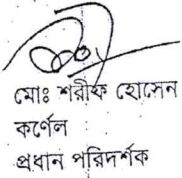 মোঃ শরীফ হোসেন
কর্ণেল
প্রধান পরিদর্শক